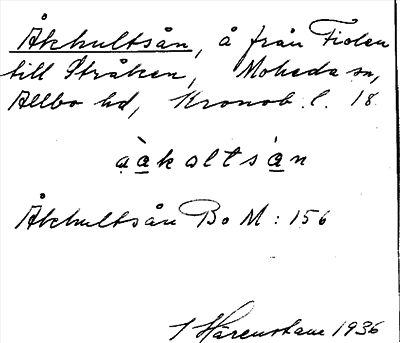 Åkhultsån, å från Fiolen
till Stråken, Moheda sn,
Allbo hd, Kronob. l. 18
àa̲kaltsa̲n
Åkhultsån Bo M: 156
1936